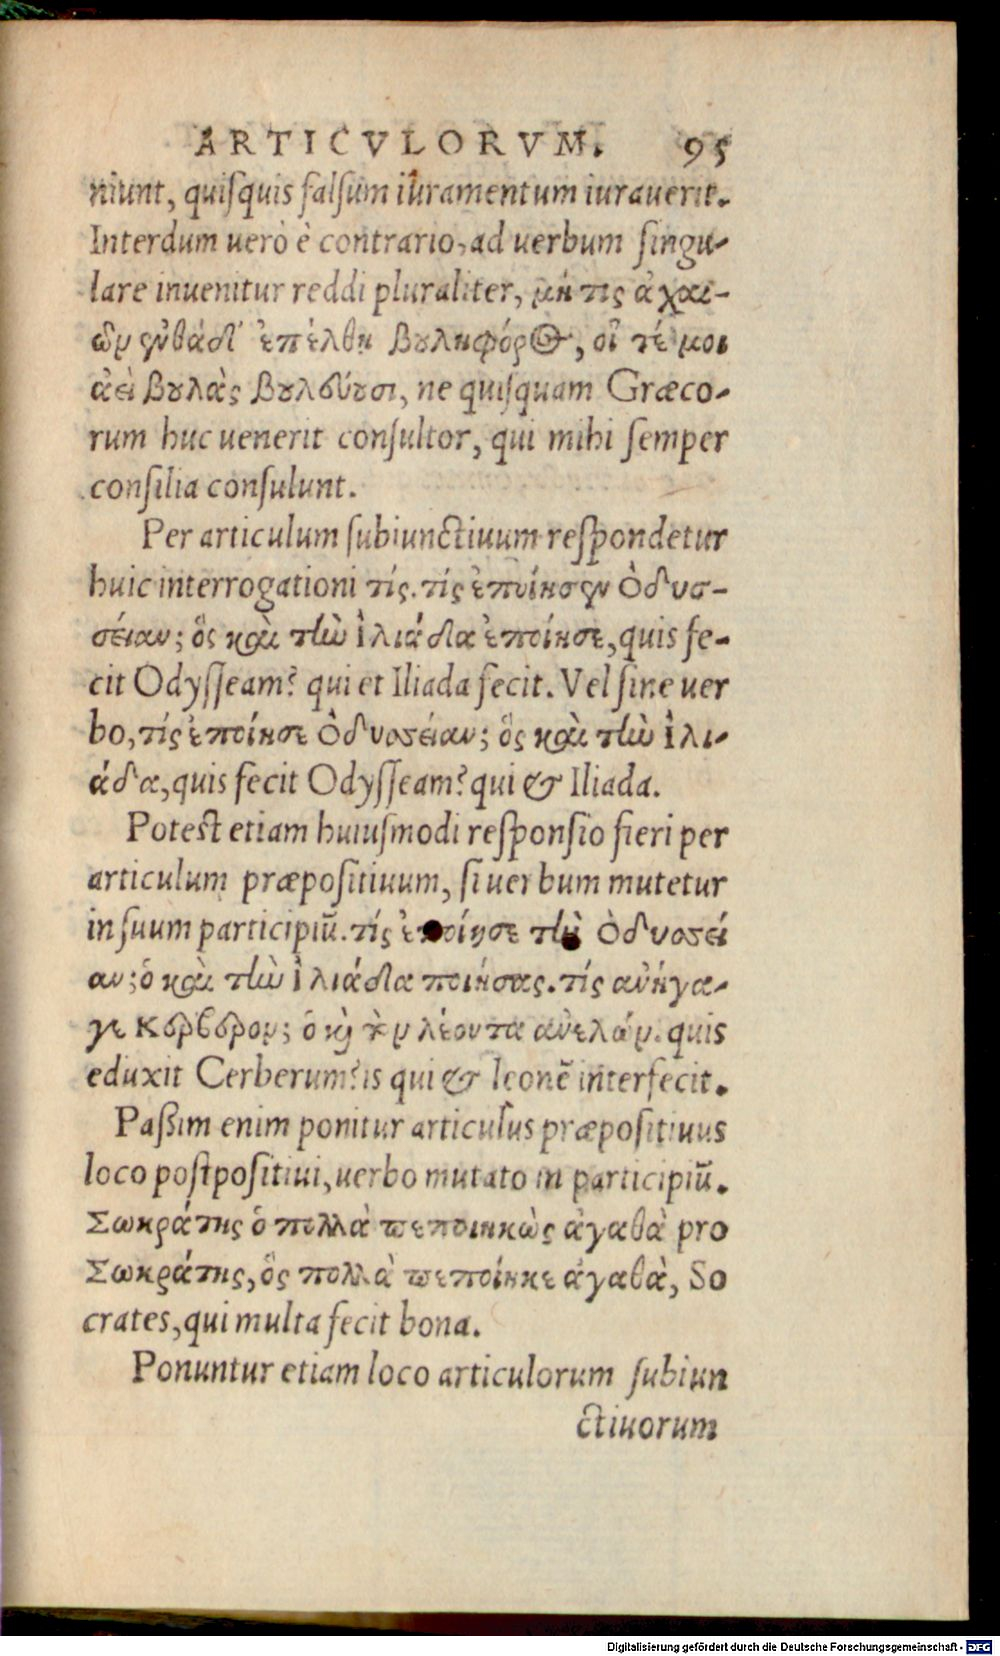 ARTICVLORVM. 95
niunt, quiſquis falſum iuramentum iurauerit.
Interdum uerò è contrario, ad uerbum ſingu-
lare inuenitur reddi pluraliter, μή τις ἀχαι-
ῶν ἐνθάδ' ἐπέλθη βουληφόρος, οἵ τέ μοι
ἀεὶ βουλὰς βουλεύουσι, ne quiſquam Græco-
rum huc uenerit conſultor, qui mihi ſemper
conſilia conſulunt.
Per articulum ſubiunctiuum reſpondetur
huic interrogationi τίς. τίς ἐποίησεν Ὀδυσ-
σέιαν; ὃς καὶ τὴν Ἰλιάδα ἐποίησε, quis fe-
cit Odyſſeam? qui et Iliada fecit. Vel ſine uer
bo, τίς ἐποίησε Ὀδυσσέιαν; ὃς καὶ τὴν Ἰλι-
άδα, quis fecit Odyſſeam? qui & Iliada.
Poteſt etiam huiuſmodi reſponſio fieri per
articulum præpoſitiuum, ſi uerbum mutetur
in ſuum participiū. τίς ἐποίησε τὴν Ὀδυσσεί
αν; ὁ καὶ τὴν Ἰλιάδα ποιήσας. τίς ἀνήγα-
γε Κέρβερον; ὁ καὶ τὸν λέοντα ἀνελών. quis
eduxit Cerberum? is qui & leonē interfecit.
Paßim enim ponitur articulus præpoſitiuus
loco poſtpoſitiui, uerbo mutato in participiū.
Σωκράτης ὁ πολλὰ πεποιηκὼς ἀγαθὰ pro
Σωκράτης, ὃς πολλὰ πεποίηκε ἀγαθὰ, So
crates, qui multa fecit bona.
Ponuntur etiam loco articulorum ſubiun
ctiuorum
Digitalisierung gefördert durch die Deutsche Forschungsgemeinschaft - DFG